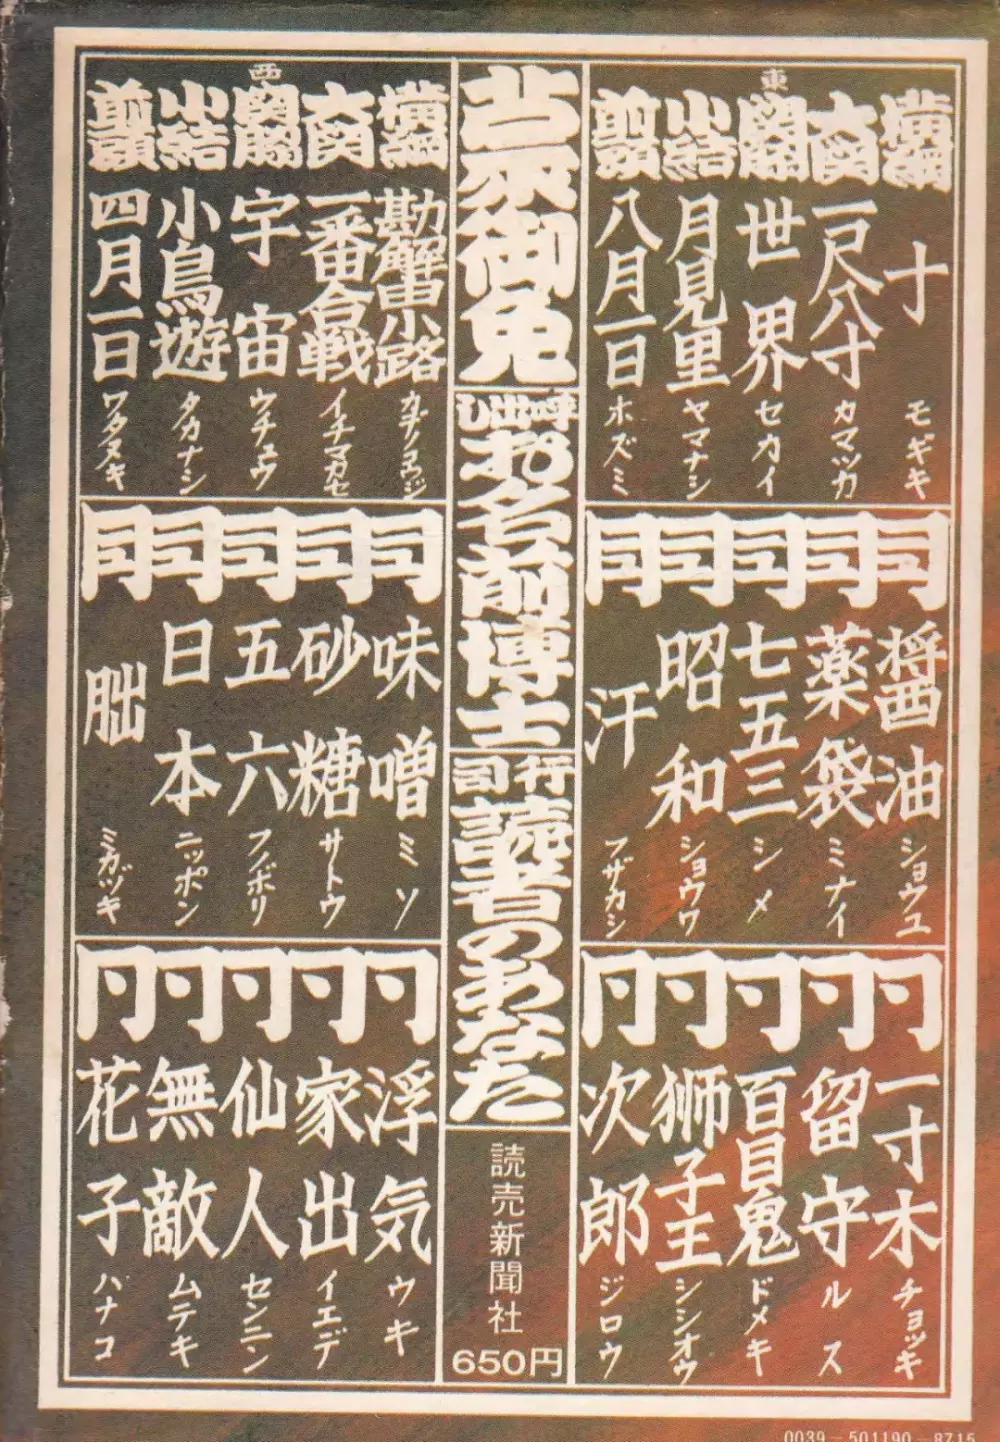 東
横綱 十 モギキ
大関 一尺八寸 カマツカ
関脇 世界 セカイ
小結 月見里 ヤマナシ
前頭 八月一日 ホズミ
同 醤油 ショウユ
同 薬袋 ミナイ
同 七五三 シメ
同 昭和 ショウワ
同 汗 フザカシ
同 一寸木 チョッキ
同 留守 ルス
同 百目鬼 ドメキ
同 獅子王 シシオウ
同 次郎 ジロウ
御免
呼出し お名前博士
行司 讀者のあなた
読売新聞社
650円
西
横綱 勘解由小路 カデノコウジ
大関 一番合戦 イチマカセ
関脇 宇宙 ウチュウ
小結 小鳥遊 タカナシ
前頭 四月一日 ワタヌキ
同 味噌 ミソ
同 砂糖 サトウ
同 五六 フノボリ
同 日本 ニッポン
同 朏 ミカヅキ
同 浮気 ウキ
同 家出 イエデ
同 仙人 センニン
同 無敵 ムテキ
同 花子 ハナコ
0039-501190-8715